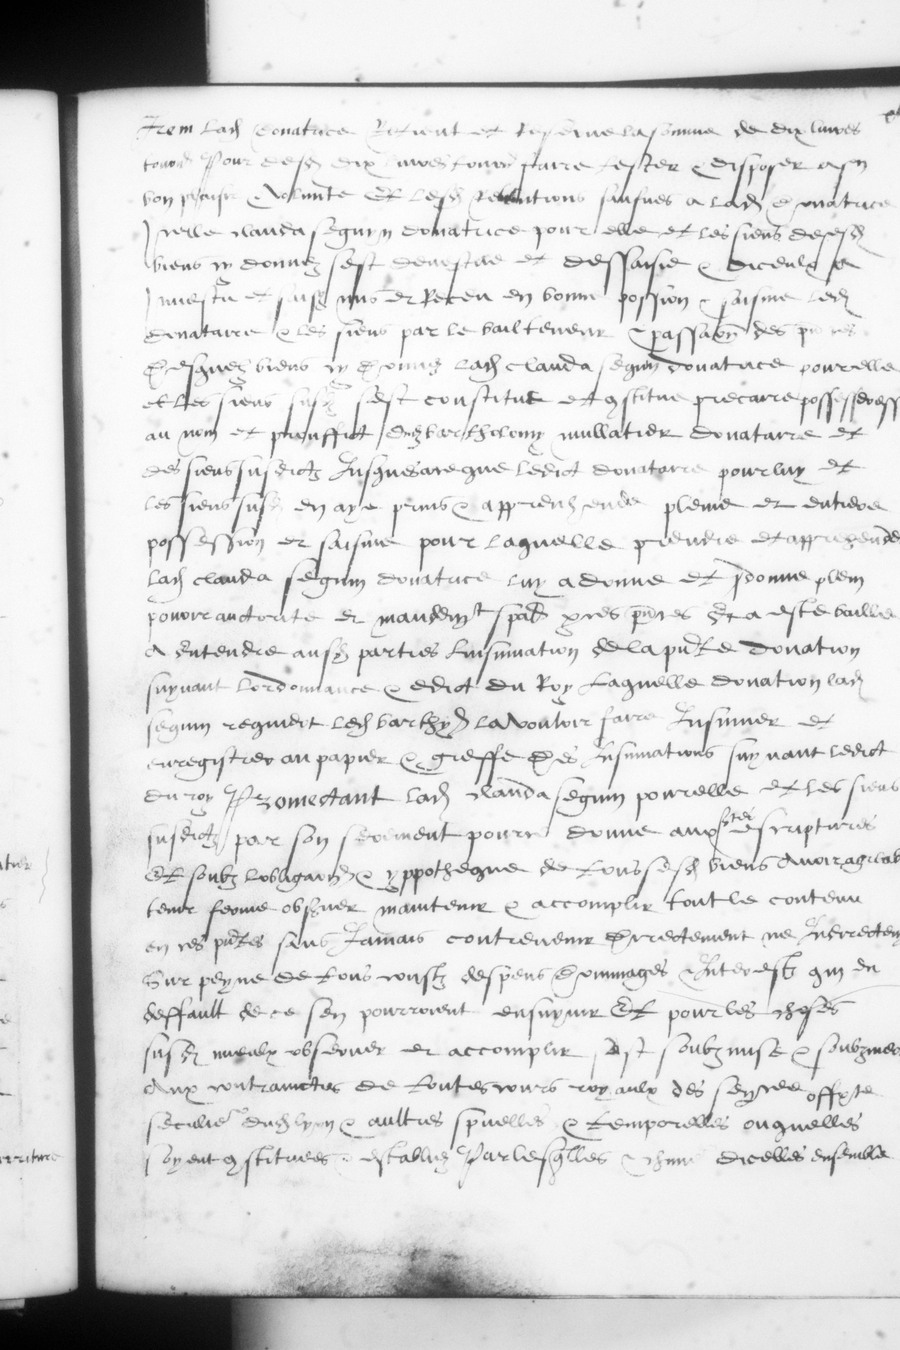 Item lad donatrice retient et reserve la somme de dix livres
tourn Pour desd dix livres tourn faire tester & disposer a son
bon plaisir & volunte Et lesd retentions saufves a lad donatrice
Icelle clauda seguyn donatrice pour elle et les siens desesd
biens cy donnez sest devestue et dessaisie & diceulx a
Investu et saisy mis et Receu en bonne possion & saisine led
donataire & les siens par le bail teneur & passaon des pntes
Desquelz biens cy donnez lad clauda seguin donatrice pour elle
et les siens susd sest constitue et constitue precaire possessoress
au nom et prouffict dud barthelomy mullatier donataire et
des siens susdictz Jusques a ce que ledict donataire pour luy et
les siens susd en aye prins & apprehende pleine et entiere
possession et saisine pour laquelle prendre et apprehender
lad clauda seguin donatrice luy a donne et donne plein
pouvoir auctorite et mandemt spal par ces pntes Et a este baille
A entendre ausd parties linsinuation de la pnte donation
suyvant lordonnance & edict du Roy Laquelle donation lad
seguin requiert led barthy la vouloir faire Insinuer et
enregistrer au papier & greffe des Insinuations suyvant ledict
du roy Promectant lad clauda seguin pour elle et les siens
susdictz par son serement pource donne aux sctes escriptures
Et soubz lobligaon & yppotheque de tous sesd biens
tenir ferme observer maintenir & accomplir tout le contenu
en ces pntes sans Jamais contrevenir directement ne Indirectem
Sur peyne de tous coustz despens dommages & Interestz qui en
deffault de ce sen pourroient ensuyvir Et pour les choses
susd mieulx observer et accomplir sest soubzmise & soubzmect
Aux contrainctes de toutes cours royaulx des sennee
seculier dud lyon & aultres spuelles & temporelles ou quelles
soyent constituees & establies Par lesquelles & chune dicelles ensemble